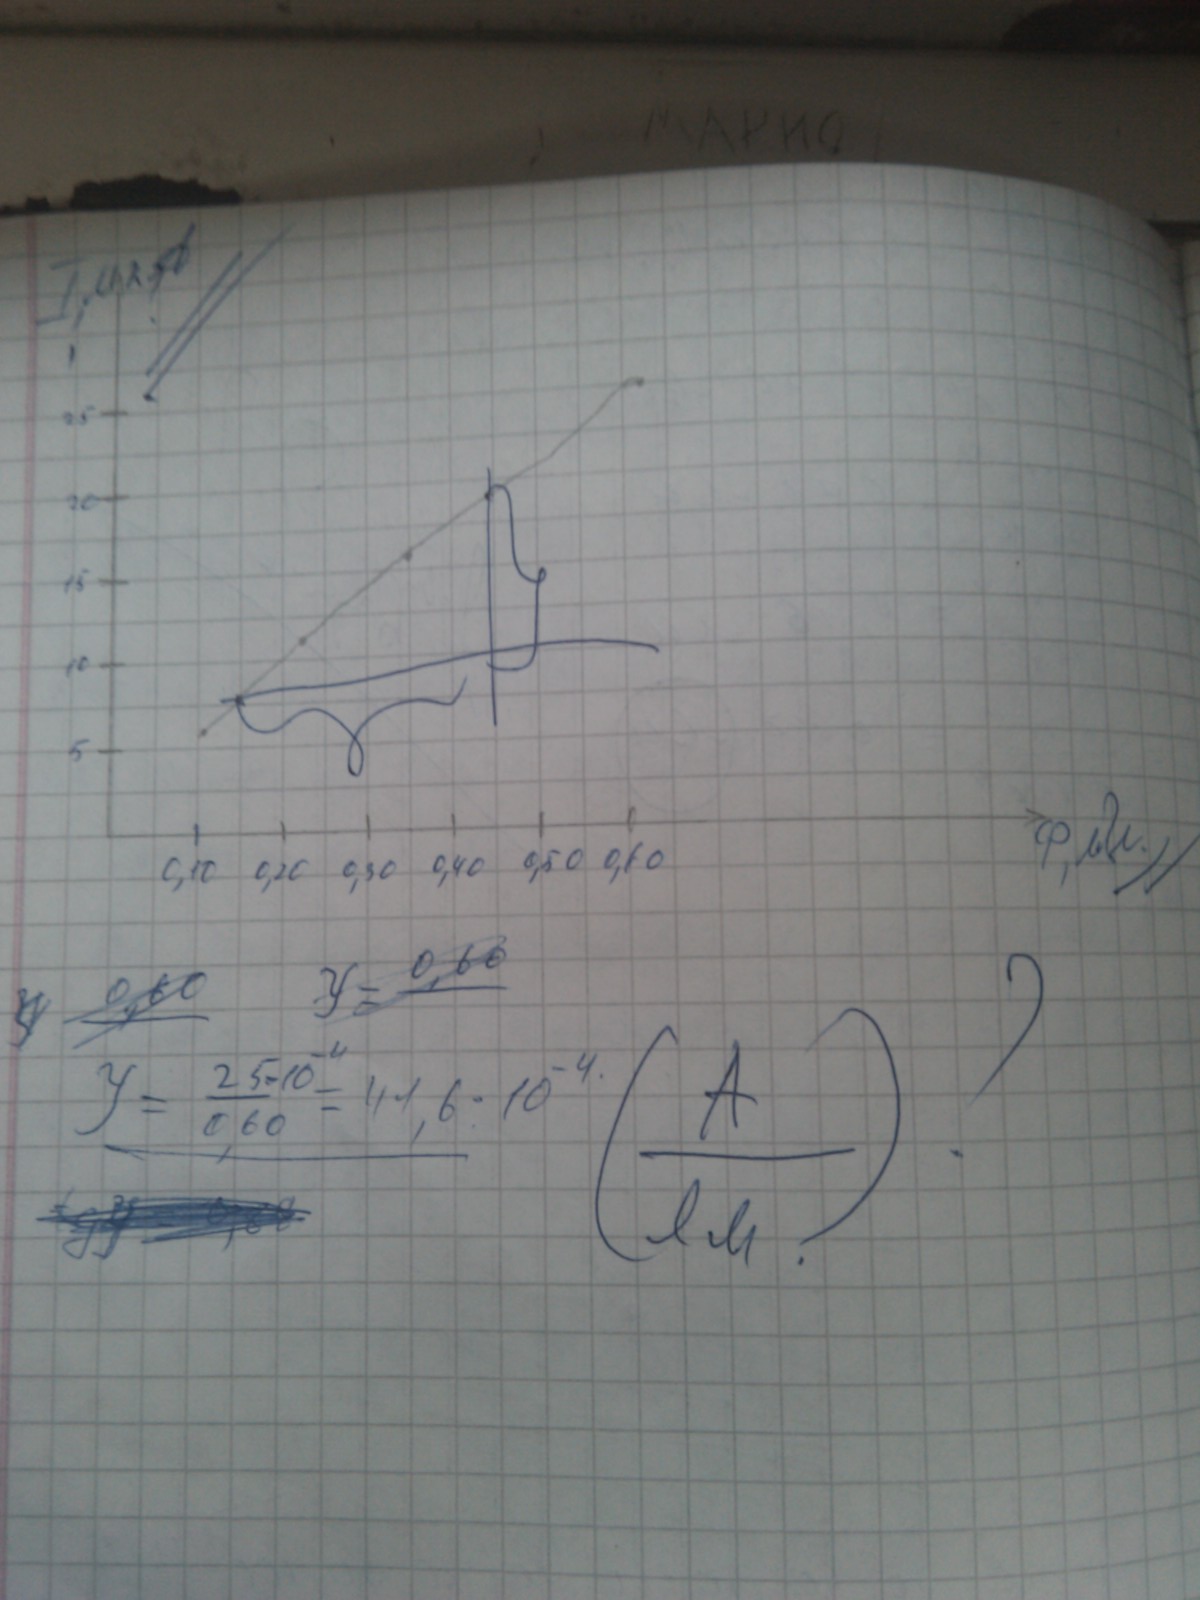 МАРИО
25
20
15
10
5
0,10 0,20 0,30 0,40 0,50 0,60
Ф, лм.
У 0,60 У = 0,60
У = 25·10⁻⁴ / 0,60 = 41,6·10⁻⁴. (А / лм) ?